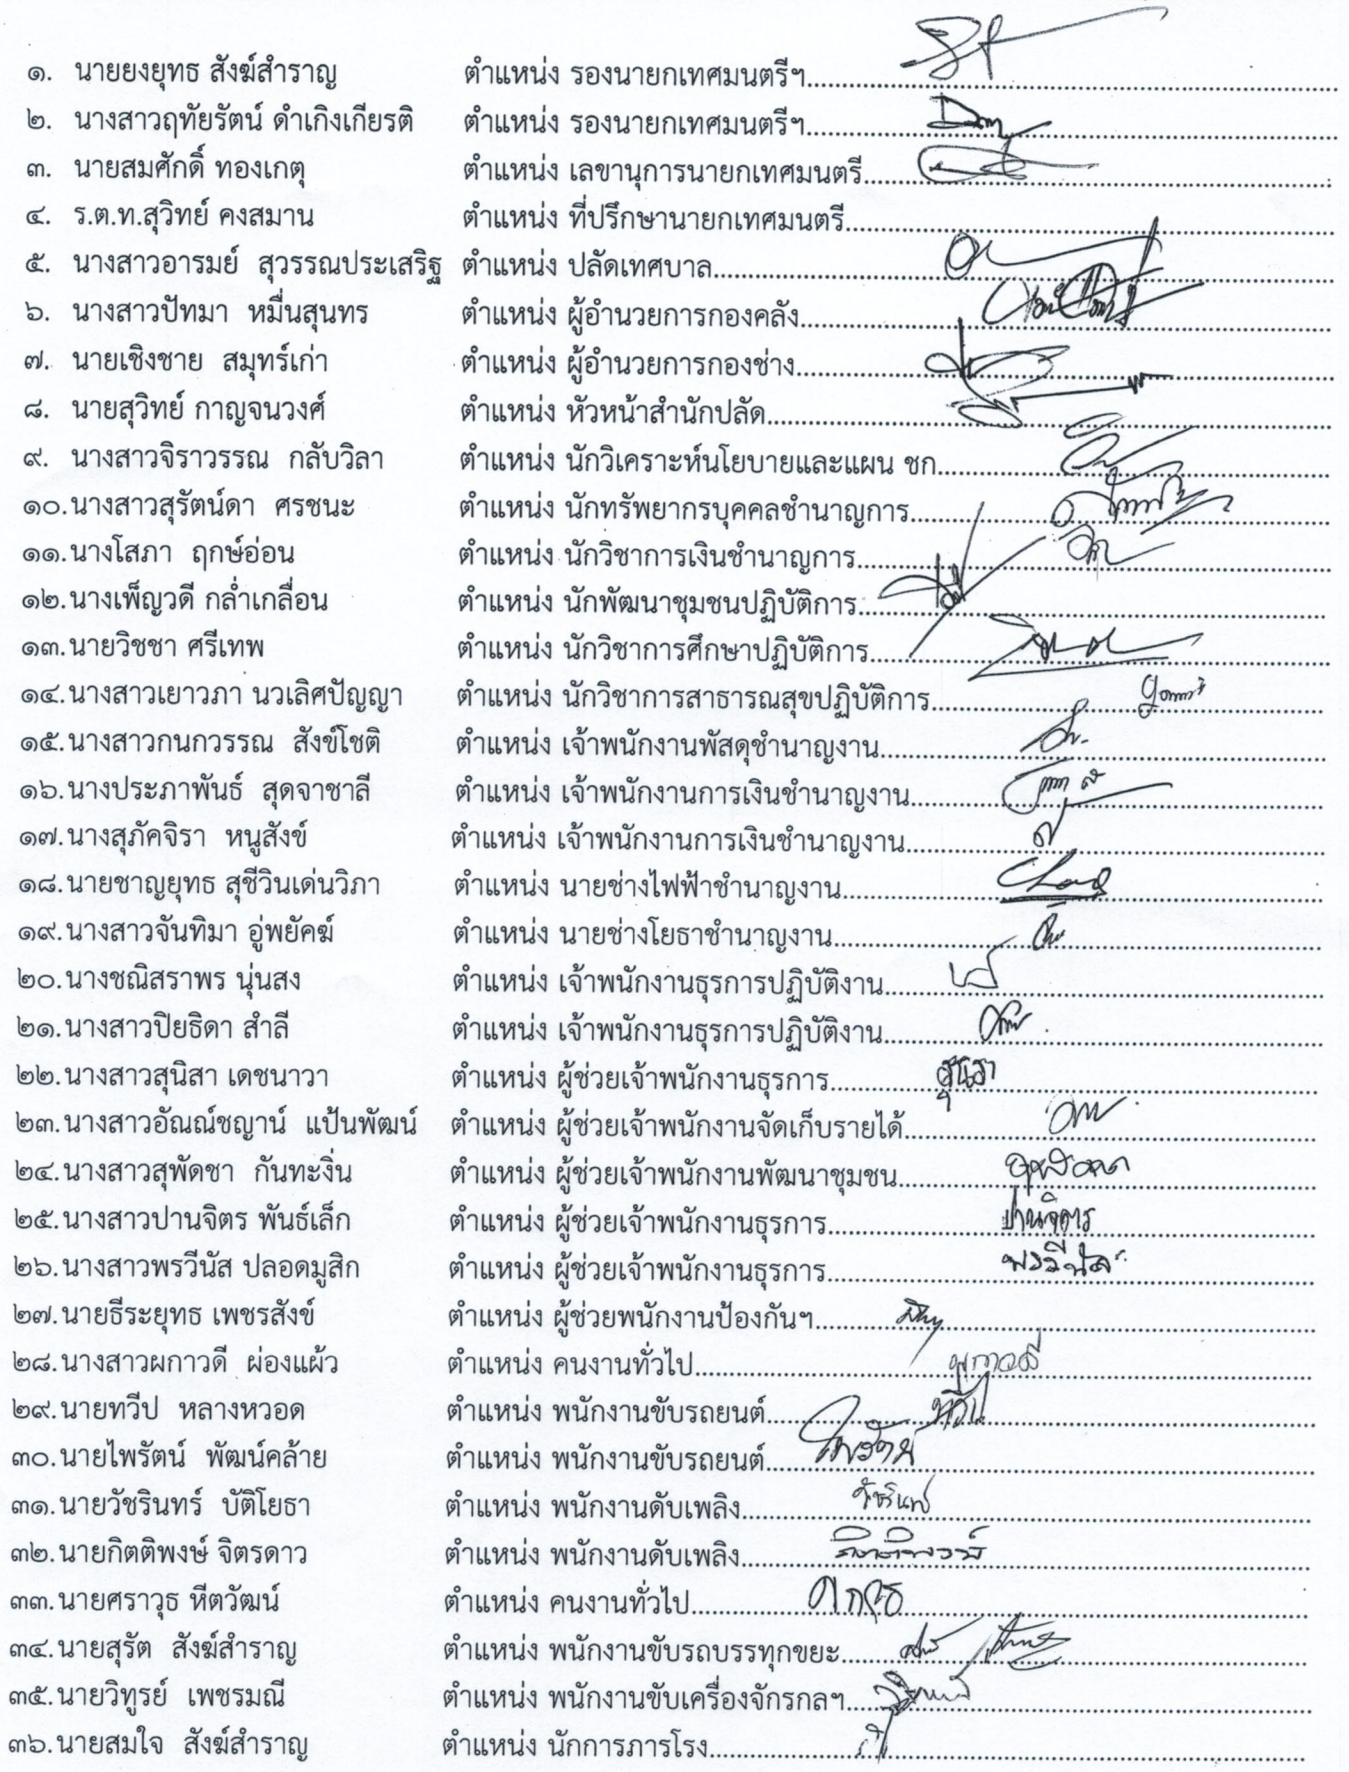 ๑. นายยงยุทธ สังฆ์สำราญ ตำแหน่ง รองนายกเทศมนตรีฯ
๒. นางสาวฤทัยรัตน์ ดำเกิงเกียรติ ตำแหน่ง รองนายกเทศมนตรีฯ
๓. นายสมศักดิ์ ทองเกตุ ตำแหน่ง เลขานุการนายกเทศมนตรี
๔. ร.ต.ท.สุวิทย์ คงสมาน ตำแหน่ง ที่ปรึกษานายกเทศมนตรี
๕. นางสาวอารมย์ สุวรรณประเสริฐ ตำแหน่ง ปลัดเทศบาล
๖. นางสาวปัทมา หมื่นสุนทร ตำแหน่ง ผู้อำนวยการกองคลัง
๗. นายเชิงชาย สมุทร์เก่า ตำแหน่ง ผู้อำนวยการกองช่าง
๘. นายสุวิทย์ กาญจนวงศ์ ตำแหน่ง หัวหน้าสำนักปลัด
๙. นางสาวจิราวรรณ กลับวิลา ตำแหน่ง นักวิเคราะห์นโยบายและแผน ชก
๑๐.นางสาวสุรัตน์ดา ศรชนะ ตำแหน่ง นักทรัพยากรบุคคลชำนาญการ
๑๑.นางโสภา ฤกษ์อ่อน ตำแหน่ง นักวิชาการเงินชำนาญการ
๑๒.นางเพ็ญวดี กล่ำเกลื่อน ตำแหน่ง นักพัฒนาชุมชนปฏิบัติการ
๑๓.นายวิชชา ศรีเทพ ตำแหน่ง นักวิชาการศึกษาปฏิบัติการ
๑๔.นางสาวเยาวภา นวเลิศปัญญา ตำแหน่ง นักวิชาการสาธารณสุขปฏิบัติการ
๑๕.นางสาวกนกวรรณ สังข์โชติ ตำแหน่ง เจ้าพนักงานพัสดุชำนาญงาน
๑๖.นางประภาพันธ์ สุดจาชาลี ตำแหน่ง เจ้าพนักงานการเงินชำนาญงาน
๑๗.นางสุภัคจิรา หนูสังข์ ตำแหน่ง เจ้าพนักงานการเงินชำนาญงาน
๑๘.นายชาญยุทธ สุชีวินเด่นวิภา ตำแหน่ง นายช่างไฟฟ้าชำนาญงาน
๑๙.นางสาวจันทิมา อู่พยัคฆ์ ตำแหน่ง นายช่างโยธาชำนาญงาน
๒๐.นางชณิสราพร นุ่นสง ตำแหน่ง เจ้าพนักงานธุรการปฏิบัติงาน
๒๑.นางสาวปิยธิดา สำลี ตำแหน่ง เจ้าพนักงานธุรการปฏิบัติงาน
๒๒.นางสาวสุนิสา เดชนาวา ตำแหน่ง ผู้ช่วยเจ้าพนักงานธุรการ สุนิสา
๒๓.นางสาวอัณณ์ชญาน์ แป้นพัฒน์ ตำแหน่ง ผู้ช่วยเจ้าพนักงานจัดเก็บรายได้
๒๔.นางสาวสุพัดชา กันทะงิ่น ตำแหน่ง ผู้ช่วยเจ้าพนักงานพัฒนาชุมชน
๒๕.นางสาวปานจิตร พันธ์เล็ก ตำแหน่ง ผู้ช่วยเจ้าพนักงานธุรการ ปานจิตร
๒๖.นางสาวพรวีนัส ปลอดมูสิก ตำแหน่ง ผู้ช่วยเจ้าพนักงานธุรการ พรวีนัส
๒๗.นายธีระยุทธ เพชรสังข์ ตำแหน่ง ผู้ช่วยพนักงานป้องกันฯ
๒๘.นางสาวผกาวดี ผ่องแผ้ว ตำแหน่ง คนงานทั่วไป ผกาวดี
๒๙.นายทวีป หลางหวอด ตำแหน่ง พนักงานขับรถยนต์ ทวีป
๓๐.นายไพรัตน์ พัฒน์คล้าย ตำแหน่ง พนักงานขับรถยนต์ ไพรัตน์
๓๑.นายวัชรินทร์ บัติโยธา ตำแหน่ง พนักงานดับเพลิง
๓๒.นายกิตติพงษ์ จิตรดาว ตำแหน่ง พนักงานดับเพลิง กิตติพงษ์
๓๓.นายศราวุธ หีตวัฒน์ ตำแหน่ง คนงานทั่วไป
๓๔.นายสุรัต สังฆ์สำราญ ตำแหน่ง พนักงานขับรถบรรทุกขยะ
๓๕.นายวิทูรย์ เพชรมณี ตำแหน่ง พนักงานขับเครื่องจักรกลฯ
๓๖.นายสมใจ สังฆ์สำราญ ตำแหน่ง นักการภารโรง